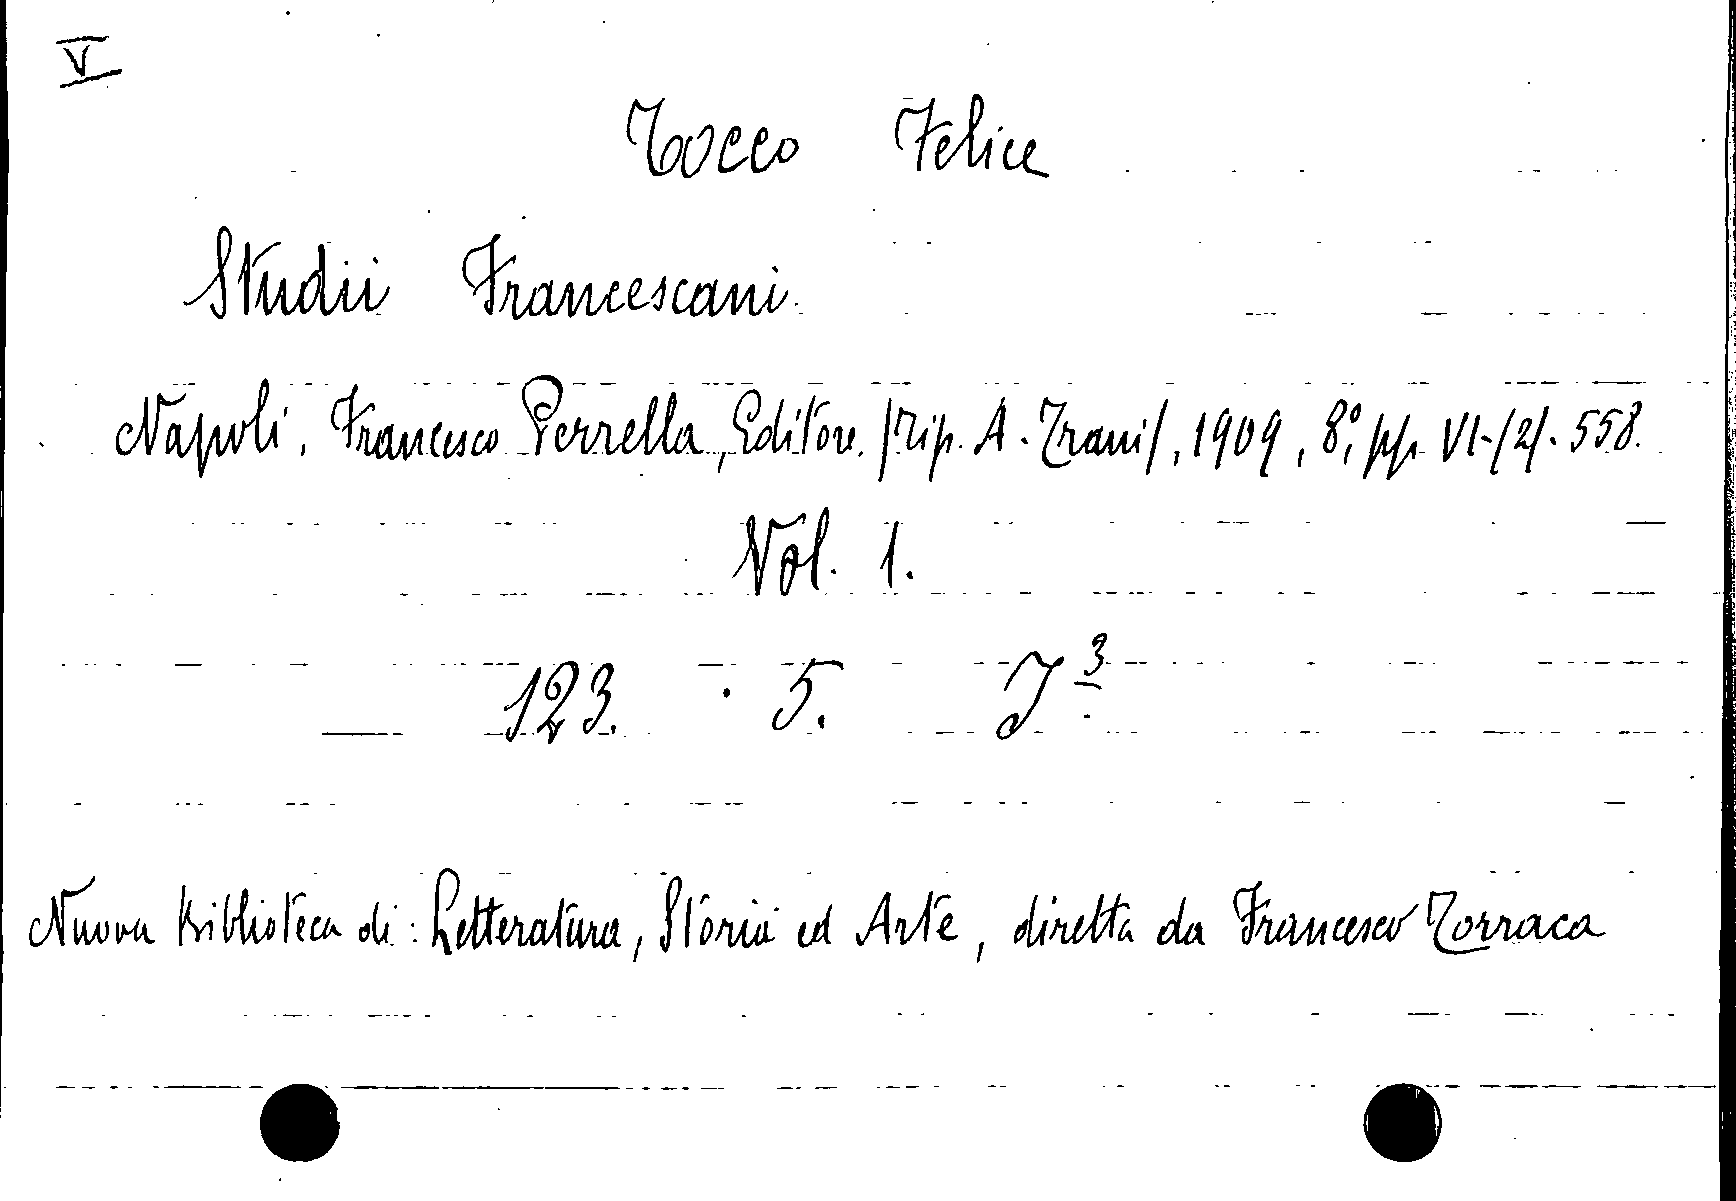 V
Tocco Felice
Studii Francescani
Napoli, Francesco Perrella, Editore. /Tip. A. Trani/, 1909, 8°, pp. VI-/2/-558.
Vol. 1.
123. 5. J 3
Nuova Biblioteca di: Letteratura, Storia ed Arte, diretta da Francesco Torraca